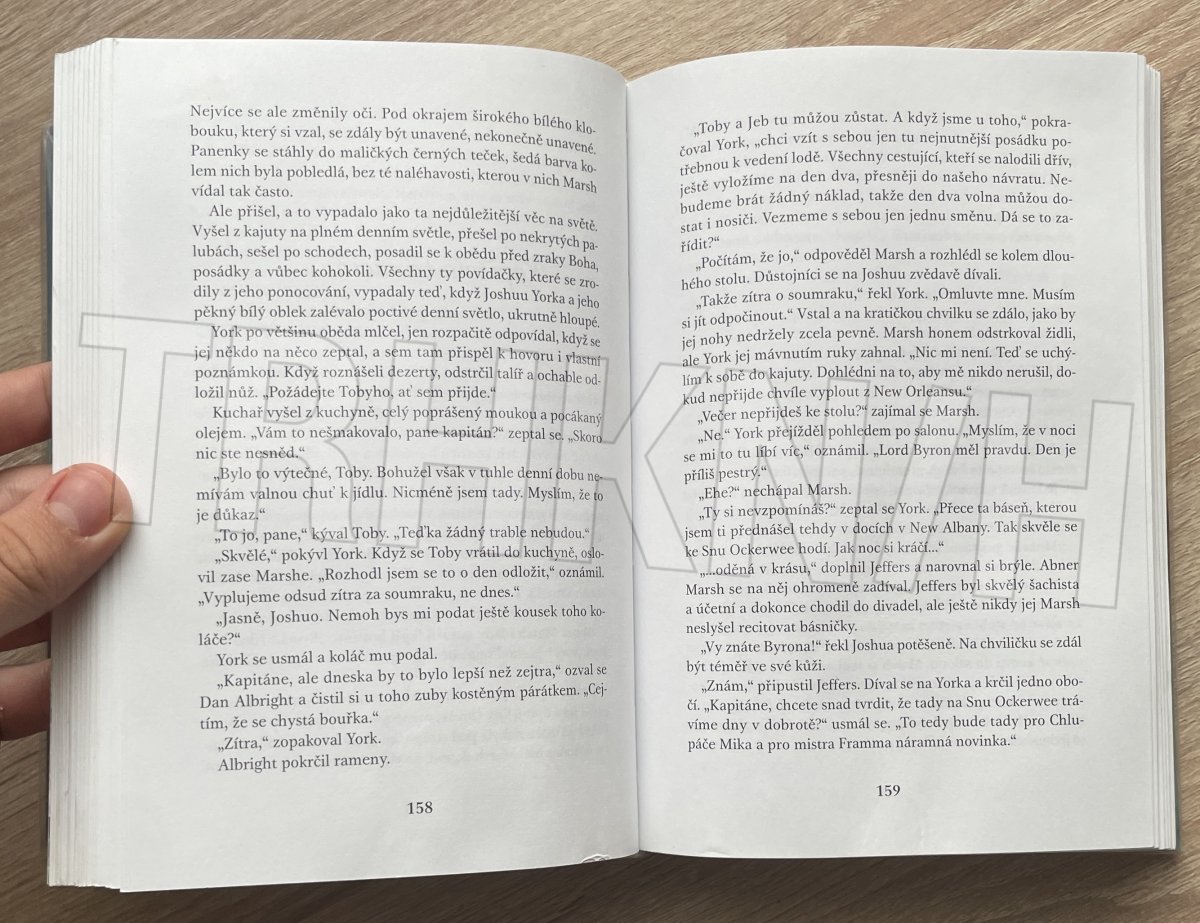 Nejvíce se ale změnily oči. Pod okrajem širokého bílého klo-
bouku, který si vzal, se zdály být unavené, nekonečně unavené.
Panenky se stáhly do maličkých černých teček, šedá barva ko-
lem nich byla pobledlá, bez té naléhavosti, kterou v nich Marsh
vídal tak často.
Ale přišel, a to vypadalo jako ta nejdůležitější věc na světě.
Vyšel z kajuty na plném denním světle, přešel po nekrytých pa-
lubách, sešel po schodech, posadil se k obědu před zraky Boha,
posádky a vůbec kohokoli. Všechny ty povídačky, které se zro-
dily z jeho ponocování, vypadaly teď, když Joshuu Yorka a jeho
pěkný bílý oblek zalévalo poctivé denní světlo, ukrutně hloupé.
York po většinu oběda mlčel, jen rozpačitě odpovídal, když se
jej někdo na něco zeptal, a sem tam přispěl k hovoru i vlastní
poznámkou. Když roznášeli dezerty, odstrčil talíř a ochable od-
ložil nůž. „Požádejte Tobyho, ať sem přijde.“
Kuchař vyšel z kuchyně, celý poprášený moukou a pocákaný
olejem. „Vám to nešmakovalo, pane kapitán?“ zeptal se. „Skoro
nic ste nesněd.“
„Bylo to výtečné, Toby. Bohužel však v tuhle denní dobu ne-
mívám valnou chuť k jídlu. Nicméně jsem tady. Myslím, že to
je důkaz.“
„To jo, pane,“ kýval Toby. „Teďka žádný trable nebudou.“
„Skvělé,“ pokývl York. Když se Toby vrátil do kuchyně, oslo-
vil zase Marshe. „Rozhodl jsem se to o den odložit,“ oznámil.
„Vyplujeme odsud zítra za soumraku, ne dnes.“
„Jasně, Joshuo. Nemoh bys mi podat ještě kousek toho ko-
láče?“
York se usmál a koláč mu podal.
„Kapitáne, ale dneska by to bylo lepší než zejtra,“ ozval se
Dan Albright a čistil si u toho zuby kostěným párátkem. „Cej-
tím, že se chystá bouřka.“
„Zítra,“ zopakoval York.
Albright pokrčil rameny.
158
„Toby a Jeb tu můžou zůstat. A když jsme u toho,“ pokra-
čoval York, „chci vzít s sebou jen tu nejnutnější posádku po-
třebnou k vedení lodě. Všechny cestující, kteří se nalodili dřív,
ještě vyložíme na den dva, přesněji do našeho návratu. Ne-
budeme brát žádný náklad, takže den dva volna můžou do-
stat i nosiči. Vezmeme s sebou jen jednu směnu. Dá se to za-
řídit?“
„Počítám, že jo,“ odpověděl Marsh a rozhlédl se kolem dlou-
hého stolu. Důstojníci se na Joshuu zvědavě dívali.
„Takže zítra o soumraku,“ řekl York. „Omluvte mne. Musím
si jít odpočinout.“ Vstal a na kratičkou chvilku se zdálo, jako by
jej nohy nedržely zcela pevně. Marsh honem odstrkoval židli,
ale York jej mávnutím ruky zahnal. „Nic mi není. Teď se uchý-
lím k sobě do kajuty. Dohlédni na to, aby mě nikdo nerušil, do-
kud nepřijde chvíle vyplout z New Orleansu.“
„Večer nepřijdeš ke stolu?“ zajímal se Marsh.
„Ne.“ York přejížděl pohledem po salonu. „Myslím, že v noci
se mi to tu líbí víc,“ oznámil. „Lord Byron měl pravdu. Den je
příliš pestrý.“
„Ehe?“ nechápal Marsh.
„Ty si nevzpomínáš?“ zeptal se York. „Přece ta báseň, kterou
jsem ti přednášel tehdy v docích v New Albany. Tak skvěle se
ke Snu Ockerwee hodí. Jak noc si kráčí...“
„...oděná v krásu,“ doplnil Jeffers a narovnal si brýle. Abner
Marsh se na něj ohromeně zadíval. Jeffers byl skvělý šachista
a účetní a dokonce chodil do divadel, ale ještě nikdy jej Marsh
neslyšel recitovat básničky.
„Vy znáte Byrona!“ řekl Joshua potěšeně. Na chviličku se zdál
být téměř ve své kůži.
„Znám,“ připustil Jeffers. Díval se na Yorka a krčil jedno obo-
čí. „Kapitáne, chcete snad tvrdit, že tady na Snu Ockerwee trá-
víme dny v dobrotě?“ usmál se. „To tedy bude tady pro Chlu-
páče Mika a pro mistra Framma náramná novinka.“
159
TRHKNIH